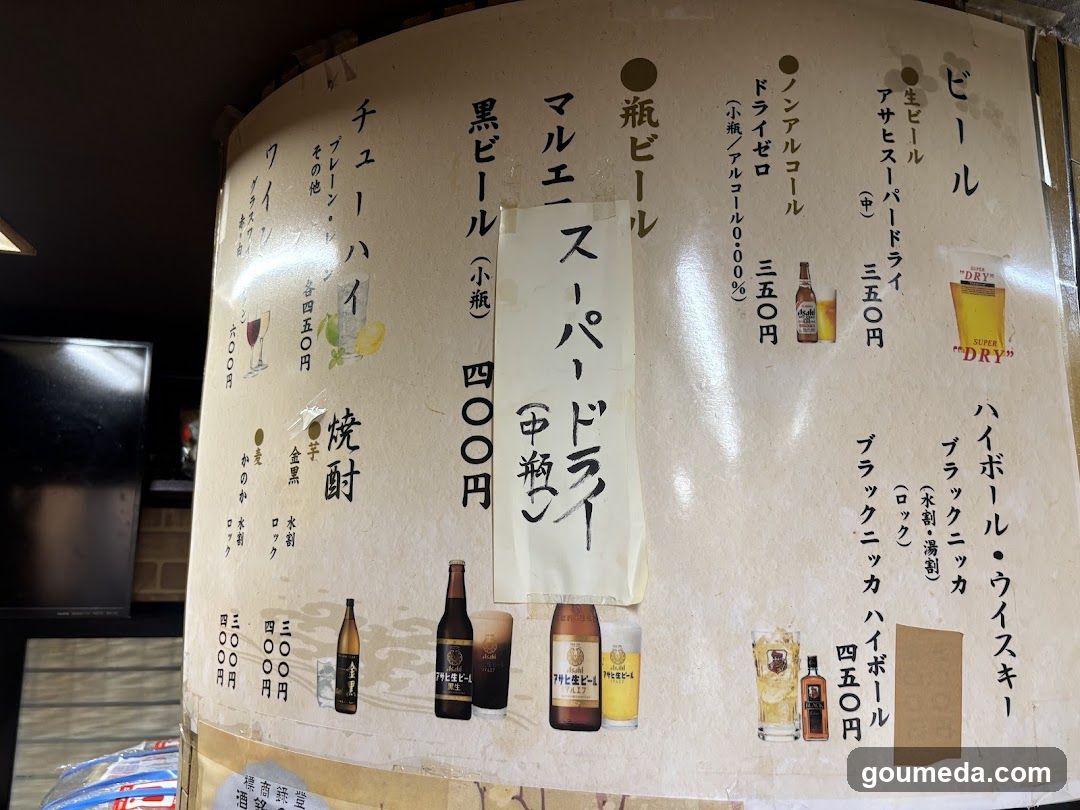 ビール
●生ビール
アサヒスーパードライ
(中) 三五〇円
SUPER
"DRY"
SUPER
"DRY"
●ノンアルコール
ドライゼロ
(小瓶/アルコール0.00%) 三五〇円
Asahi
●瓶ビール
マルエ
スーパードライ
(中瓶)
黒ビール(小瓶) 四〇〇円
チューハイ
プレーン・レ
その他 各四五〇円
ワイン
グラスワ
イン
赤・白 六〇〇円
ハイボール・ウイスキー
ブラックニッカ
(水割・湯割)
(ロック)
ブラックニッカ ハイボール
四五〇円
BLACK
Asahi
アサヒ生ビール
マルエフ
Asahi
アサヒ生ビール
黒生
焼酎
●芋
金黒 水割 三〇〇円
ロック 四〇〇円
●麦
かのか 水割 三〇〇円
ロック 四〇〇円
金黒
標商録登
酒銘
goumeda.com